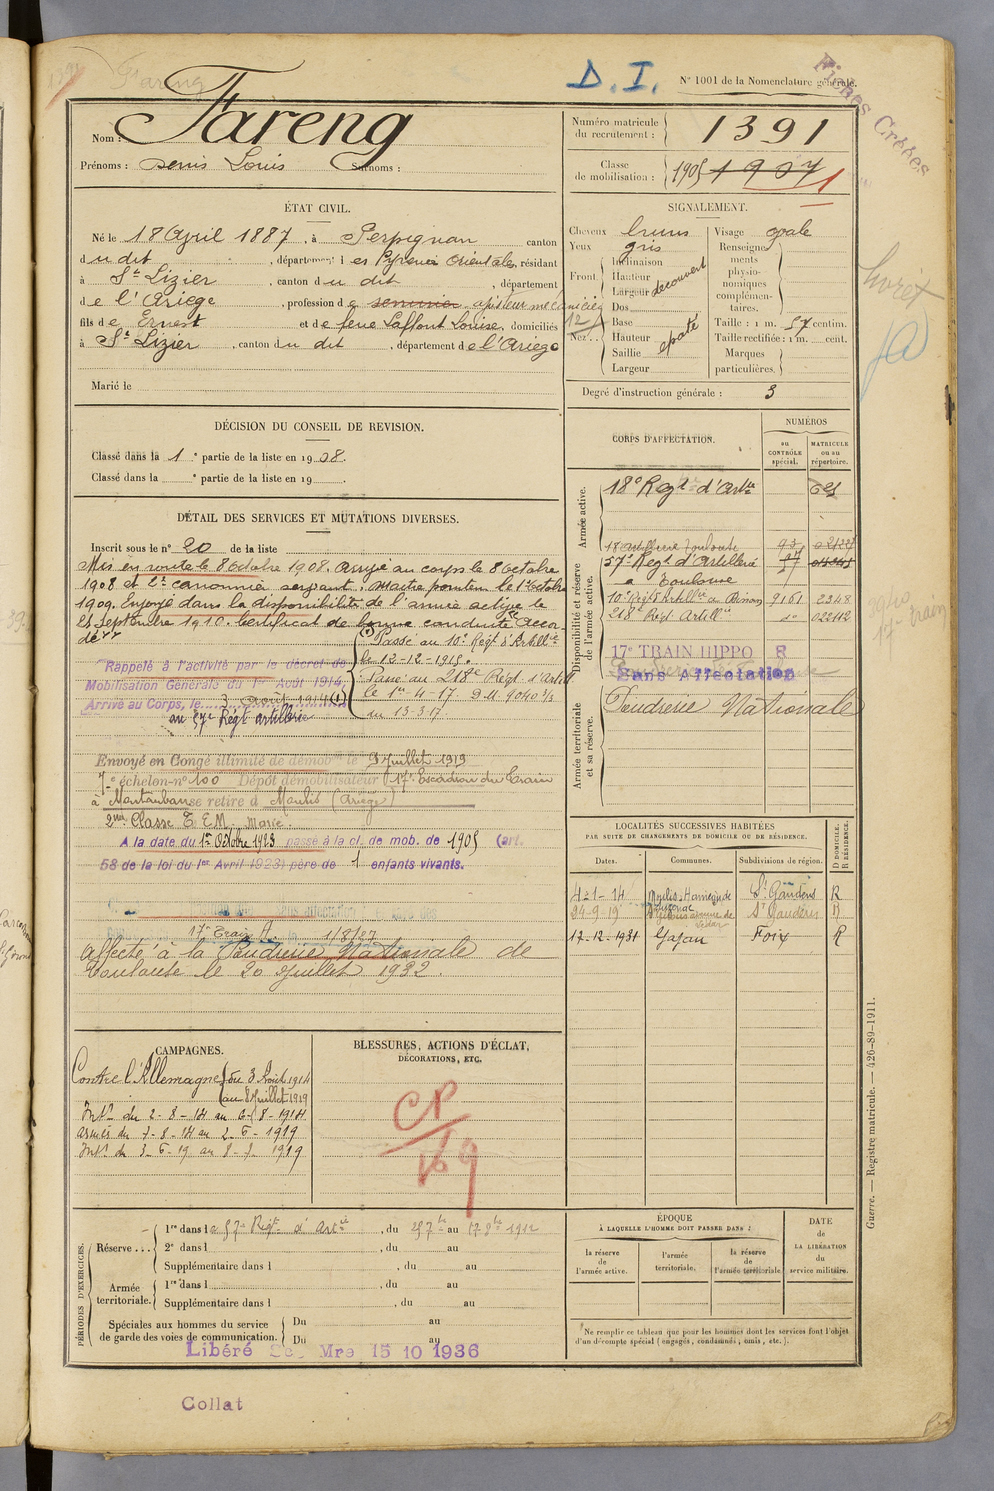 Fareng
D. I.
N° 1001 de la Nomenclature générale.
Fiches Créées
Nom : Fareng
Prénoms : Denis Louis Surnoms :
Numéro matricule du recrutement : 1391
Classe de mobilisation : 1905 1907
ÉTAT CIVIL.
Né le 18 Avril 1887, à Perpignan canton
du dit, département des Pyrénées Orientales, résidant
à St Lizier, canton du dit, département
de l'Ariège, profession de serrurier ajusteur mécanicien
fils de Ernest et de feue Laffont Louise, domiciliés
à St Lizier, canton du dit, département de l'Ariège
Marié le
SIGNALEMENT.
Cheveux bruns
Yeux gris
Front Inclinaison
Hauteur
Largeur découvert
Nez Dos
Base
Hauteur
Saillie épaté
Largeur
Visage ovale
Renseignements physionomiques complémentaires.
Taille : 1 m. 57 centim.
Taille rectifiée : 1 m. cent.
Marques particulières.
Degré d'instruction générale : 3
Livret
DÉCISION DU CONSEIL DE REVISION.
Classé dans la 1e partie de la liste en 1908.
Classé dans la e partie de la liste en 19 .
DÉTAIL DES SERVICES ET MUTATIONS DIVERSES.
Inscrit sous le n° 20 de la liste
Mis en route le 8 octobre 1908. Arrivé au corps le 8 octobre
1908 et 2e canonnier servant. Maitre pointeur le 1er octobre
1909. Envoyé dans la disponibilité de l'armée active le
25 Septembre 1910. Certificat de bonne conduite Accor-
dé
Passé au 10e Régt d'Artillie
le 12-12-1915.
Rappelé à l'activité par le décret de
Mobilisation Générale du 1er Août 1914
Arrivé au Corps, le 3 août 1914 (1)
au 57e Régt artillerie
Passé au 218e Régt d'Artill.
le 1er-4-17. D.M. 9040 3/3
du 13-3-17
Envoyé en Congé illimité de démobon le 9 Juillet 1919
7e échelon n° 100 Dépôt démobilisateur 17e Escadron du Train
à Montauban se retire à Moulis (Ariège)
2me Classe T.E.M. Marié.
A la date du 1er Octobre 1923 passé à la cl. de mob. de 1905 (art.
58 de la loi du 1er Avril 1923) père de 1 enfants vivants.
17e Train H. le 1/8/27
Affecté à la Poudrerie Nationale de
Toulouse le 20 Juillet 1932.
CORPS D'AFFECTATION.
NUMÉROS
au CONTRÔLE spécial.
MATRICULE ou au répertoire.
Armée active.
18e Régt d'Artie
Disponibilité et réserve de l'armée active.
18 Artillerie Toulouse
57e Régt d'Artillerie
à Toulouse
10e Régt Artillie 9161 2348
218e Régt Artillie do 022112
17e TRAIN HIPPO
Sans Affectation
Armée territoriale et sa réserve.
Poudrerie Nationale
LOCALITÉS SUCCESSIVES HABITÉES
PAR SUITE DE CHANGEMENTS DE DOMICILE OU DE RÉSIDENCE.
Dates. Communes. Subdivisions de région. D DOMICILE. R RÉSIDENCE.
4-1-14 Moulis St Gaudens R
24-9-19 St Gaudens R
17-12-1931 Gajan Foix R
CAMPAGNES.
Contre l'Allemagne du 3 Août 1914
au 8 Juillet 1919
Intr du 2-8-14 au 6-8-1914
armées du 7-8-14 au 2-6-1919
Intr du 3-6-19 au 8-7-1919
BLESSURES, ACTIONS D'ÉCLAT,
DÉCORATIONS, ETC.
PÉRIODES D'EXERCICES.
Réserve... 1re dans le 57e Régt d'Artie, du 25 7bre au 17 8bre 1912
2e dans l , du au
Supplémentaire dans l , du au
Armée territoriale. 1re dans l , du au
Supplémentaire dans l , du au
Spéciales aux hommes du service de garde des voies de communication. Du au
Du au
Libéré Mre 15 10 1936
ÉPOQUE
À LAQUELLE L'HOMME DOIT PASSER DANS :
la réserve de l'armée active.
l'armée territoriale.
la réserve de l'armée territoriale.
DATE DE LA LIBÉRATION du service militaire.
Ne remplir ce tableau que pour les hommes dont les services font l'objet
d'un décompte spécial (engagés, condamnés, omis, etc.).
Guerre. — Registre matricule. — 426-89-1911.
Collat